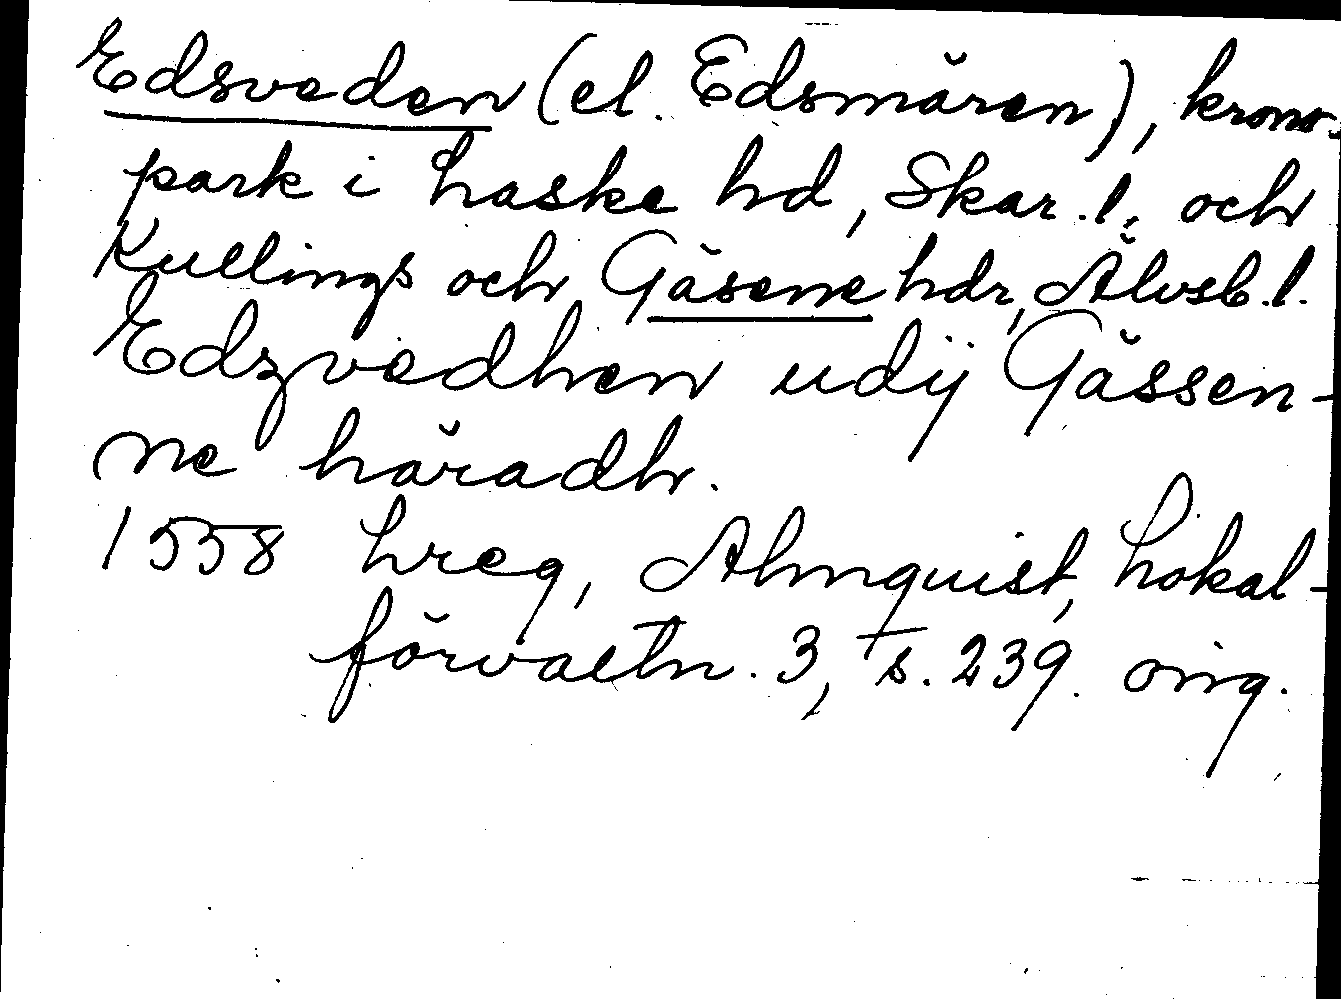 Edsveden (el. Edsmären), krono-
park i Laske hd, Skar. l. och
Kullings och Gäsene hdr, Älvsb. l.
Edzvedhen udij Gässen-
ne häradh.
1558 Lreg, Almquist, Lokal-
förvaltn. 3, s. 239. orig.